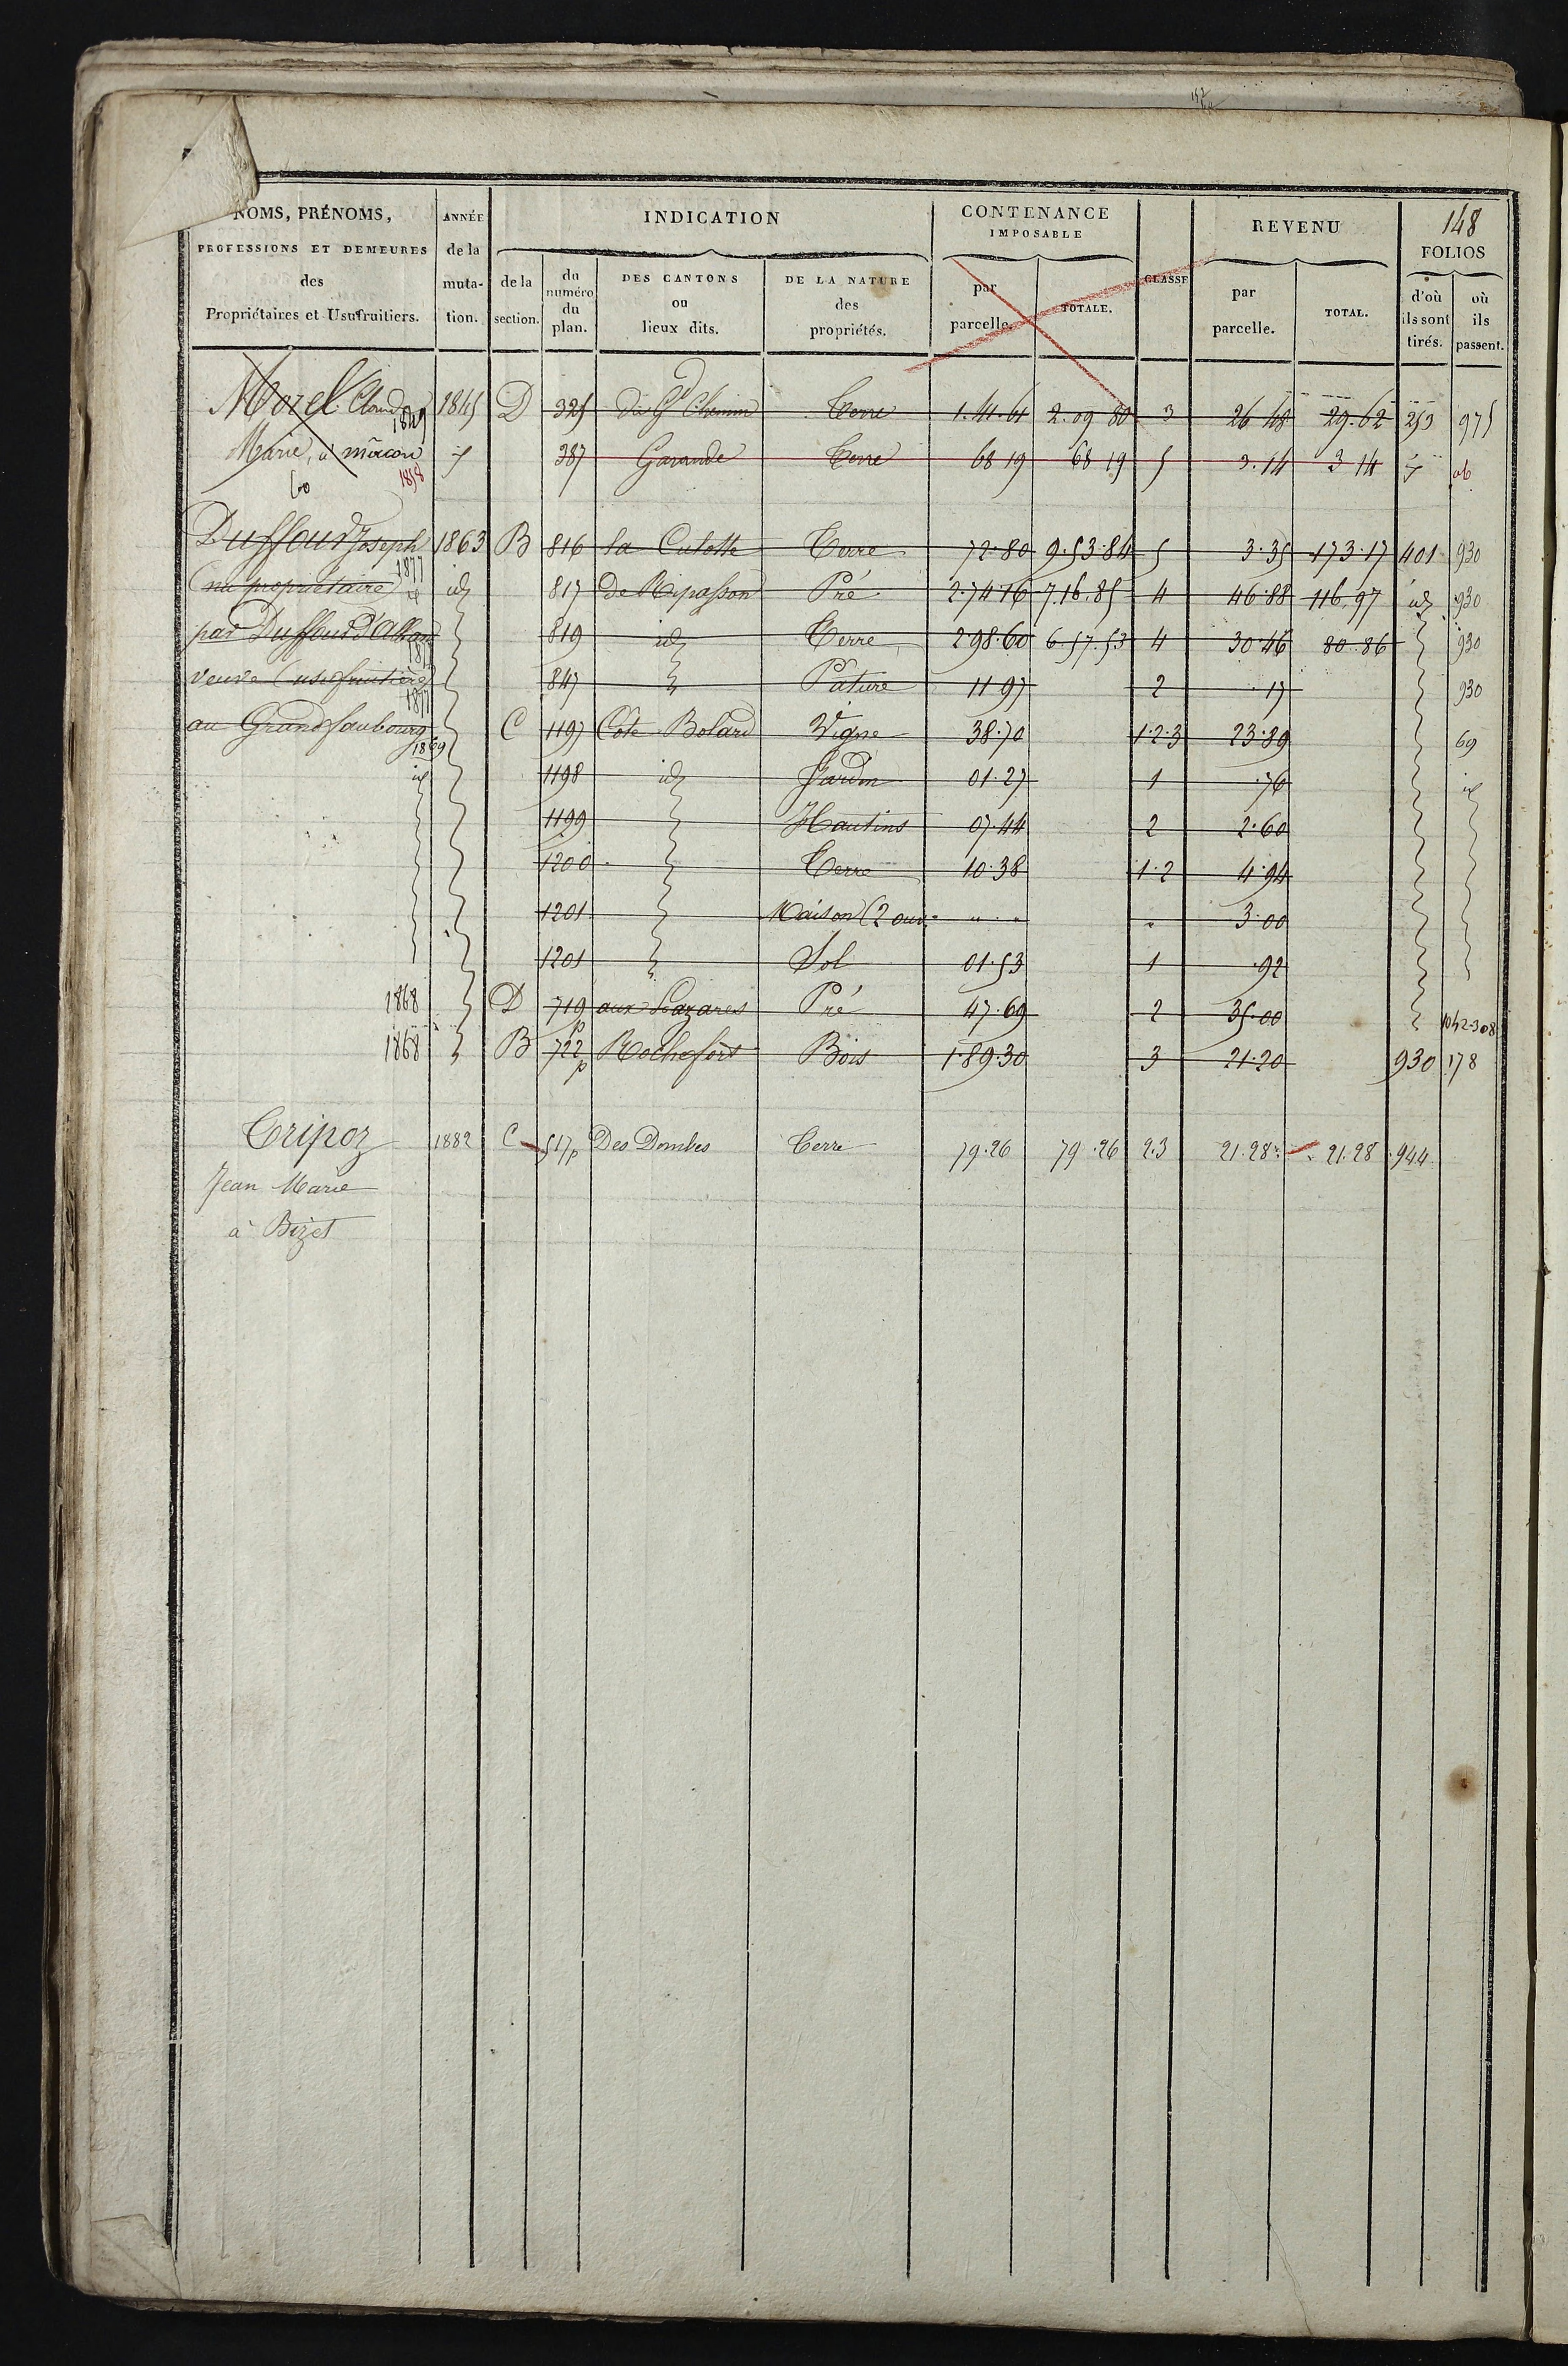 148
NOMS, PRÉNOMS, PROFESSIONS ET DEMEURES des Propriétaires et Usufruitiers. ANNÉE de la muta- tion. INDICATION de la section. du numéro du plan. DES CANTONS ou lieux dits. DE LA NATURE des propriétés. CONTENANCE IMPOSABLE par parcelle. TOTALE. CLASSE REVENU par parcelle. TOTAL. FOLIOS d'où ils sont tirés. où ils passent.
Morel Claude 1849 1845 D 325 du Gd Chemin Terre 1.41.61 2.09 80 3 26 48 29.62 253 975
Marie, à mâcon 1858 387 Garande Terre 68 19 68 19 5 3.14 3 14
Duffour Joseph 1863 B 816 la Culotte Terre 72.80 9.53.84 5 3.35 173.17 401 930
(nu propriétaire) 1877 id 817 de Ripasson Pré 2.74.16 7.16.85 4 46.88 116.97 id 930
par Duffour 819 id Terre 2.98.60 6.57.53 4 30.46 80.86 930
veuve (usufruitière) 1877 847 Pature 11 97 2 17 930
au Grand faubourg 1869 C 1197 Côte Bolard Vigne 38.70 1.2.3 23.89 69
id 1198 id Jardin 01.27 1 .76 id
1199 Hautins 07.44 2 2.60
1200 Terre 10.38 1.2 4.94
1201 Maison (2 ouv. 3.00
1201 Sol 01.53 1 .92
1868 D 719 p aux Lazares Pré 47.69 2 35.00 1042-308
1868 B 722 p Rochefort Bois 1.89.30 3 21.20 930 178
Tripoz 1882 C 517p Des Dombes Terre 79.26 79.26 2.3 21.28 21.28 944
Jean Marie
à Bizet